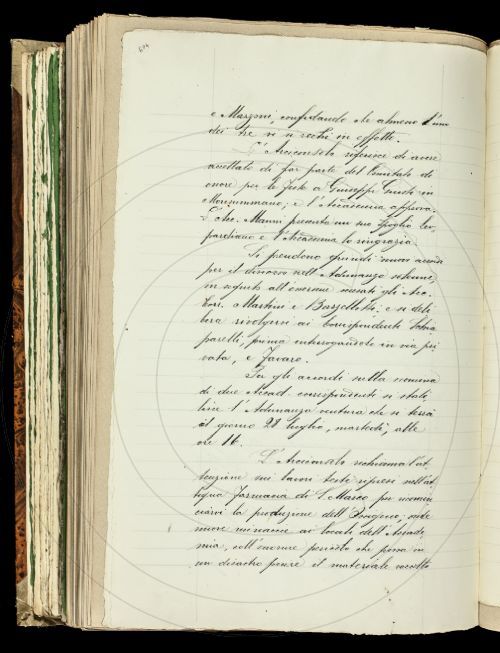 e Mazzoni, confidando che almeno l'uno
dei tre vi si rechi in effetto.
L'Arciconsolo riferisce di avere
accettato di far parte del Comitato di
onore per le feste a Giuseppe Giusti in
Monsummano; e l'Accademia approva.
L'Acc. Manni presenta un suo spoglio leo
pardiano e l'Accademia lo ringrazia.
Si prendono quindi nuovi accordi
per il discorso nell'Adunanza solenne;
in seguito all'essersi scusati gli Acc.
Torr. Martini e Barzellotti, e si deli
bera rivolgersi ai Corrispondenti
parelli, prima interrogandolo in via pri
vata, e Favaro.
Per gli accordi sulla nomina
di due Accad. corrispondenti si stabi
lisce l'Adunanza ventura che si terrà
il giorno 28 luglio, martedì, alle
ore 16.
L'Arciconsolo richiama l'at
tenzione sui lavori testè ripresi nell'at
tigua farmacia di S. Marco per ricomin
ciarvi la produzione dell'Ossigeno, onde
nuove minacce ai locali dell'Accade
mia, coll'enorme pericolo che possa in
un disastro perire il materiale raccolto